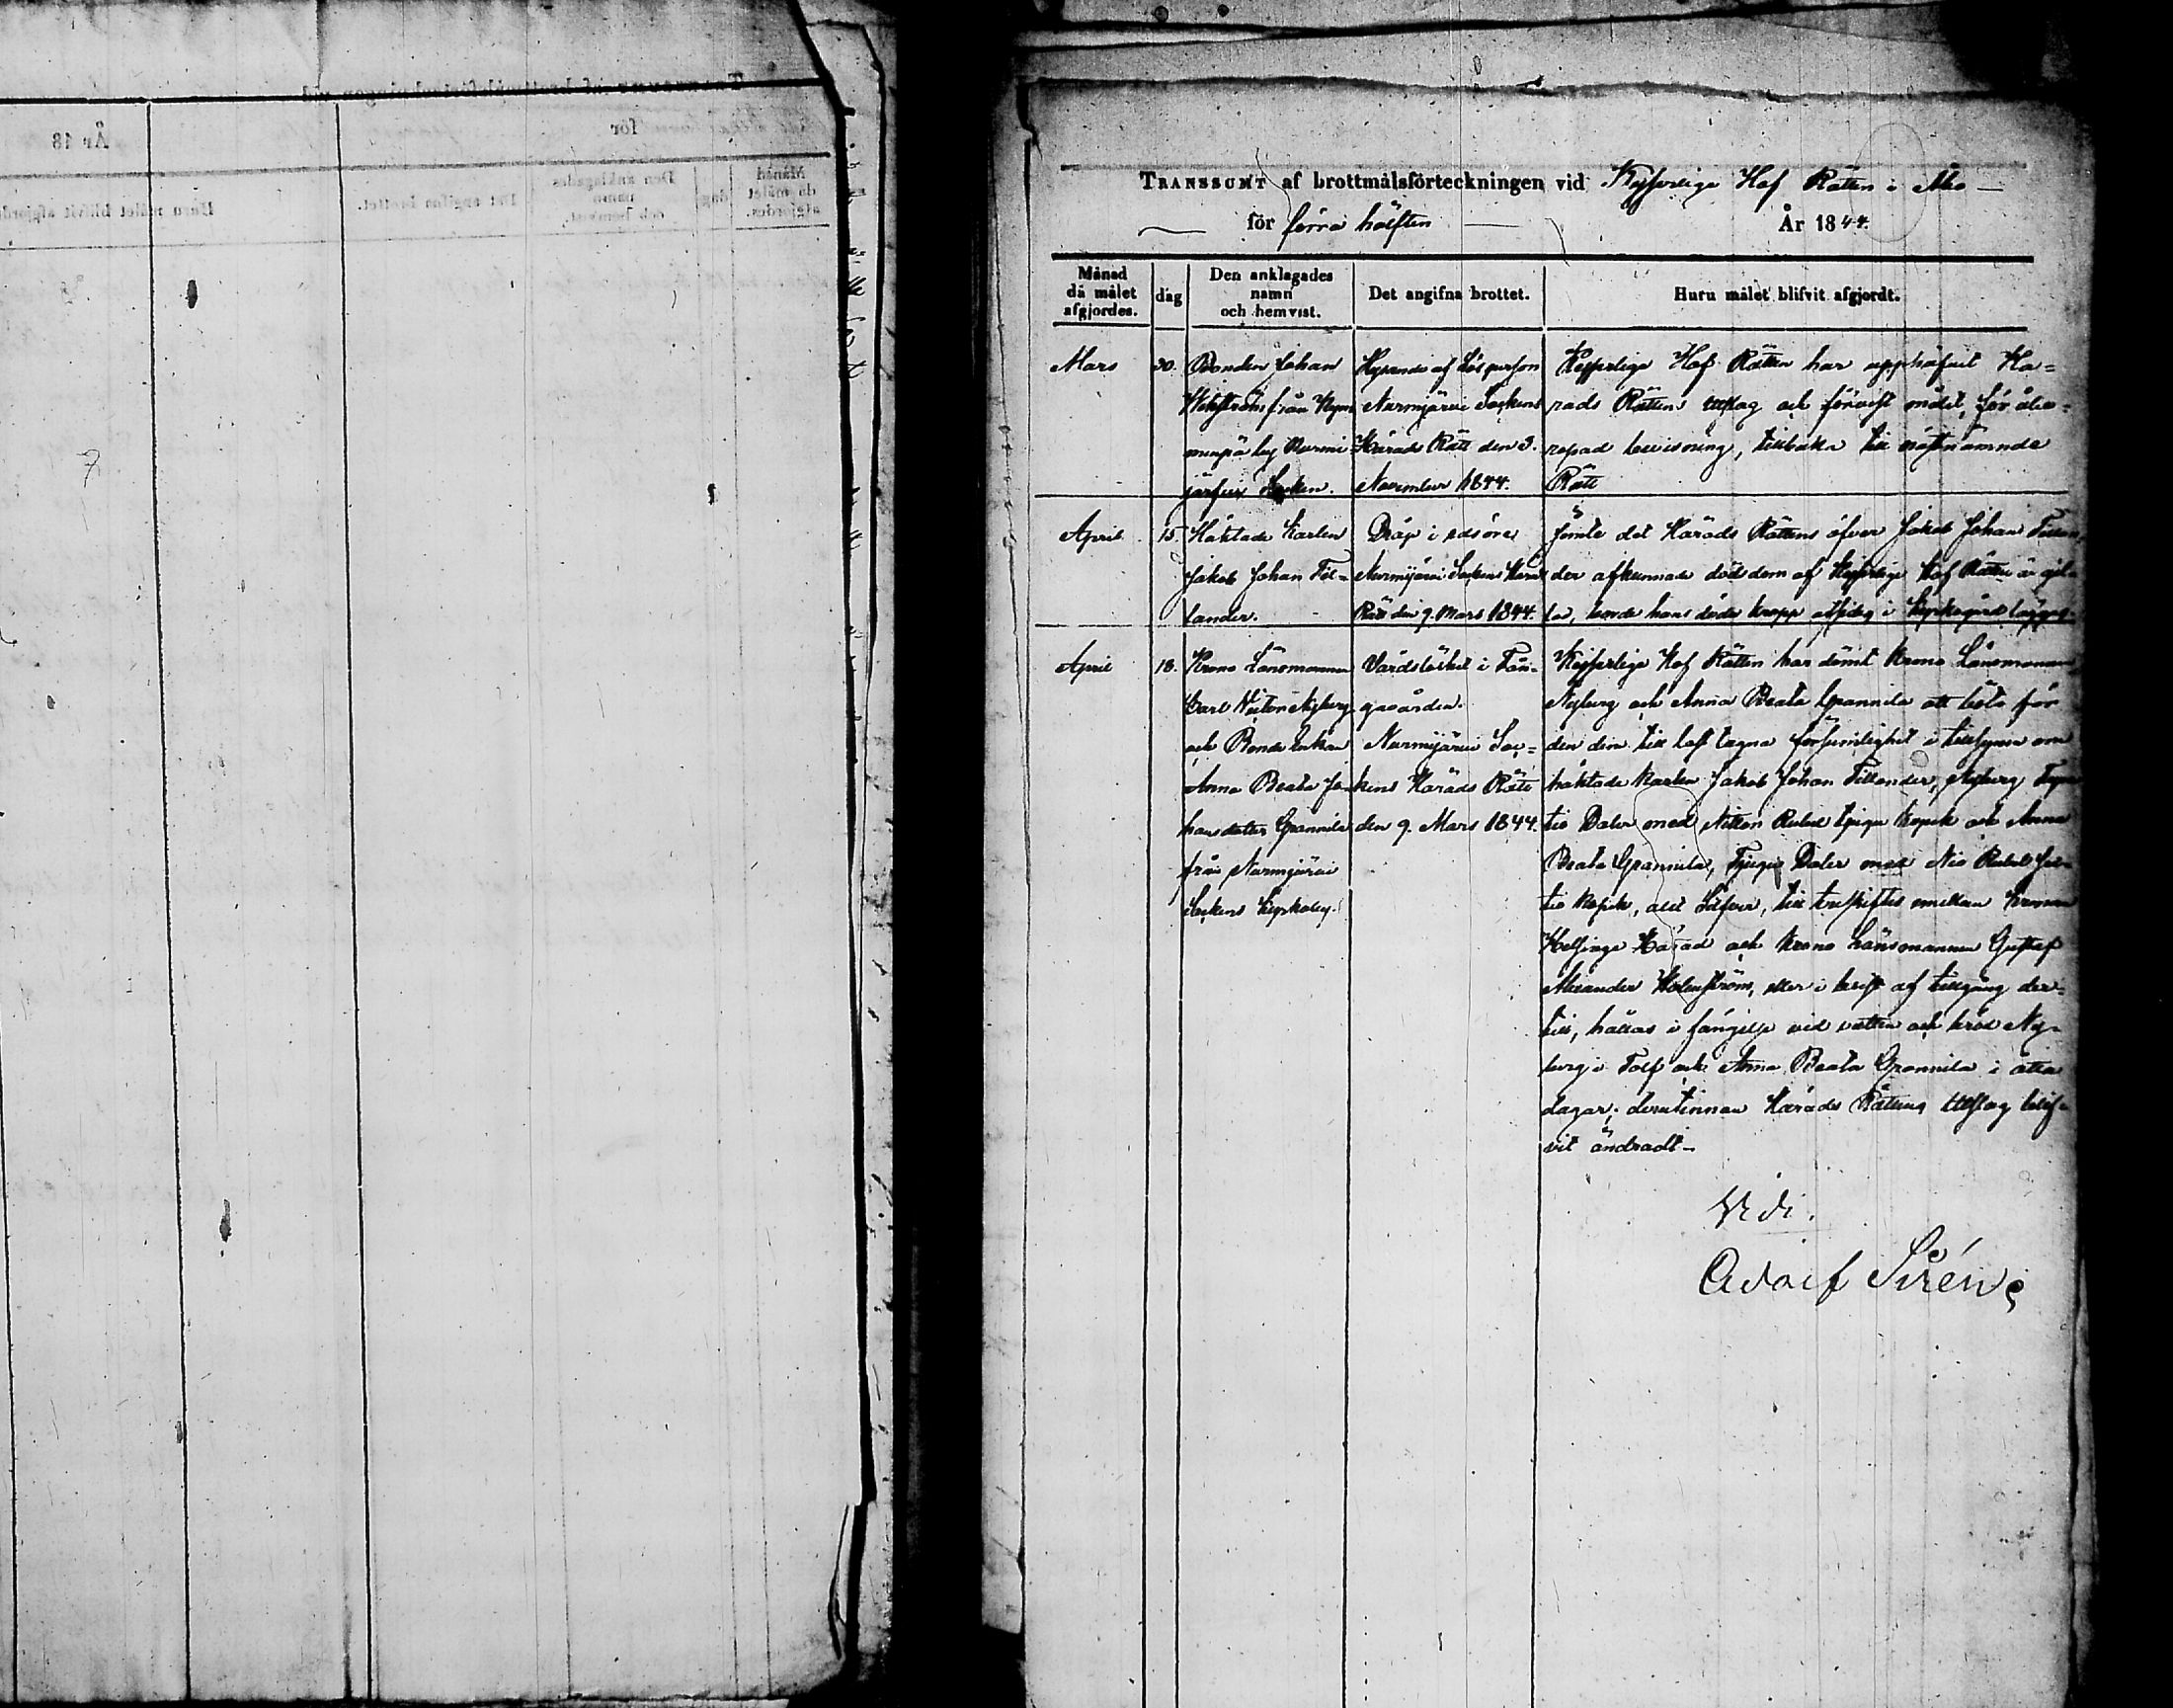 TRANSSUMT af brottmålsförteckningen vid Kejserliga Hof Rätten i Åbo
för förra hälften År 1844.
Månad då målet afgjordes.
dag
Den anklagades namn och hemvist.
Det angifna brottet.
Huru målet blifvit afgjordt.
Mars
30.
Bonden Johan
från
by Nurmi-
järfvi Socken.
Hysande af Lösperson
Nurmijärvi Sockens
Härads Rätt den 3.
November 1844.
Kejserliga Hof Rätten har upphäfvit Hä=
rads Rättens utslag och förvist målet, för åbe=
ropad bevisning, tillbaka till nästnämnde
Rätt
April
15.
Häktade Karlen
Jakob Johan Til=
lander.
Dråp i edsöre
Nurmijärvi Sockens Härads
Rätt den 9. Mars 1844.
Jemte det Härads Rättens öfver Jakob Johan Tillan
der afkunnade dödsdom af Kejserliga Hof Rätten är gil-
lad, borde hans döda kropp afsides i Kyrkogård läggas.
April
18.
Krono Länsmannen
Carl Victor Nyberg
och Bonde Enkan
Anna Beata Jo
hansdotter Grannila
från Nurmijärvi
Sockens Kyrkoby.
Vårdslöshet i Fån-
gevården.
Nurmijärvi Soc=
kens Härads Rätt
den 9. Mars 1844.
Kejserliga Hof Rätten har dömt Krono Länsmannen
Nyberg och Anna Beata Grannila att böta för
den dem till last tagna försumlighet i tillsynen om
häktade Karlen Jakob Johan Tillander, Nyberg
tio Daler med Nitton Rubel tjugu Kopek och Anna
Beata Grannila, Tjugu Daler med Nio Rubel
tio Kopek, allt Silfver, till treskiftes emellan Kronan
Helsinge Härad och Krono Länsmannen Gustaf
Alexander Holmström, eller i brist af tillgång der=
till, hållas i fängelse vid vatten och bröd Ny-
berg i Tolf och Anna Beata Grannila i åtta
dagar; derutinnan Härads Rättens utslag blif-
vit ändradt
Vidi.
Adolf Sirén